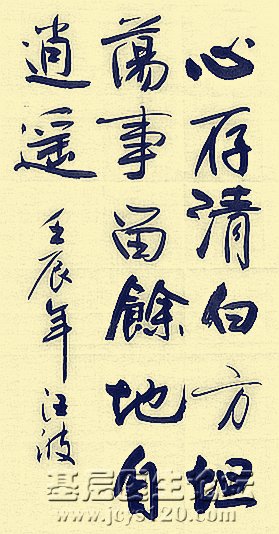 心存清白方坦
蕩事留餘地自
逍遥
壬辰年 汪波
基层医生论坛
www.jcys120.com